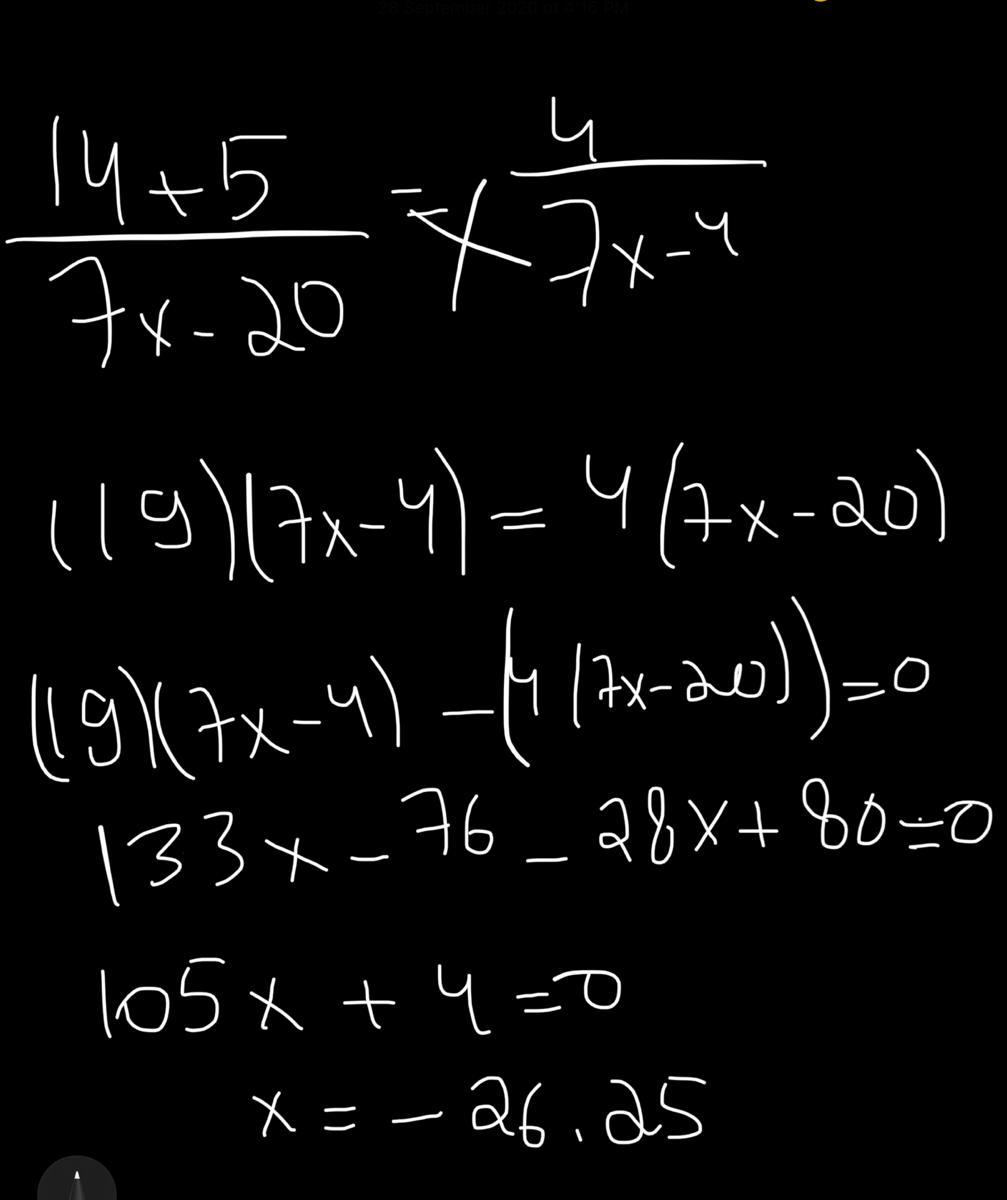 28 September 2020 at 4:16 PM
14+5 / 7x-20 = 4 / 7x-4
(19)(7x-4) = 4(7x-20)
(19)(7x-4) - (4(7x-20)) = 0
133x - 76 - 28x + 80 = 0
105x + 4 = 0
x = - 26.25